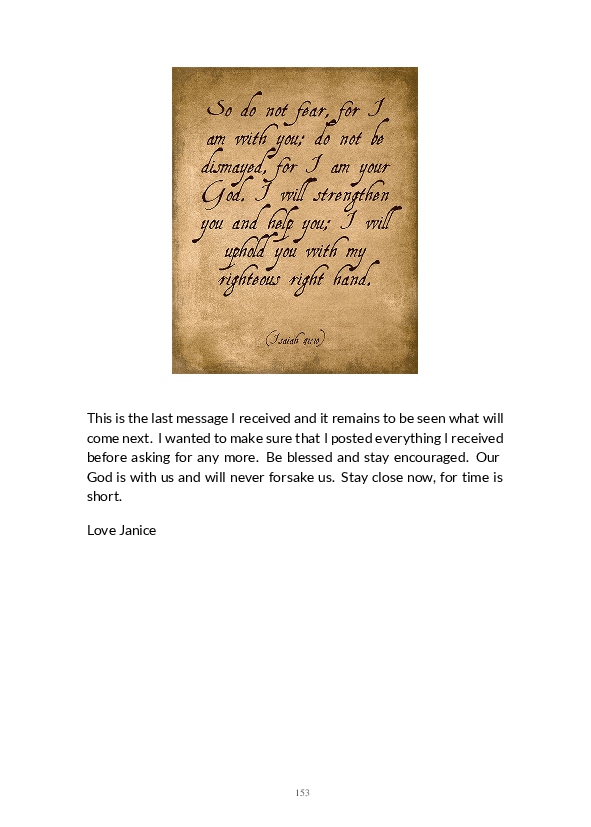 So do not fear, for I
am with you; do not be
dismayed, for I am your
God. I will strengthen
you and help you; I will
uphold you with my
righteous right hand.
(Isaiah 41:10)
This is the last message I received and it remains to be seen what will
come next. I wanted to make sure that I posted everything I received
before asking for any more. Be blessed and stay encouraged. Our
God is with us and will never forsake us. Stay close now, for time is
short.
Love Janice
153